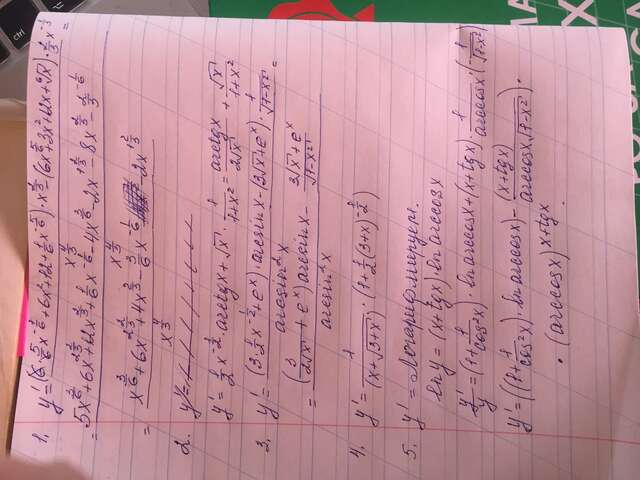 1. y' = (6·5/6 x^(-1/6) + 6x² + 12 + 1/6 x^(-5/6))·x^(2/3) - (6x^(5/6) + 3x² + 12x + ⁶√x)·2/3 x^(-1/3) / x^(4/3) =
= 5x^(3/6) + 6x^(2 2/3) + 12x^(2/3) + 1/6 x^(-1/6) - 4x^(3/6) - 2x^(1 2/3) - 8x^(2/3) - 2/3^(-1/6) / x^(4/3)
= x^(3/6) + 6x^(2 2/3) + 4x^(2/3) - 3/6 x^(-1/6) - 2x^(1 2/3) / x^(4/3)
2. y' =
y' = 1/2 x^(-1/2)·arctgx + √x · 1/(1+x²) = arctgx/(2√x) + √x/(1+x²)
3. y' = (3·1/2 x^(-1/2) + e^x)·arcsinx - (3√x + e^x)·1/√(1-x²) / arcsin²x =
= (3/(2√x) + e^x) arcsinx - (3√x + e^x)/√(1-x²) / arcsin²x
4. y' = 1/(x+√(3+x))·(1 + 1/2 (3+x)^(-1/2))
5. y' = Логарифмируем.
ln y = (x+tgx)·ln arccosx
y'/y = (1 + 1/cos²x)·ln arccosx + (x+tgx)·1/arccosx·(1/√(1-x²))
y' = ((1 + 1/cos²x)·ln arccosx) - (x+tgx)/(arccosx√(1-x²))·
·(arccosx)^(x+tgx)